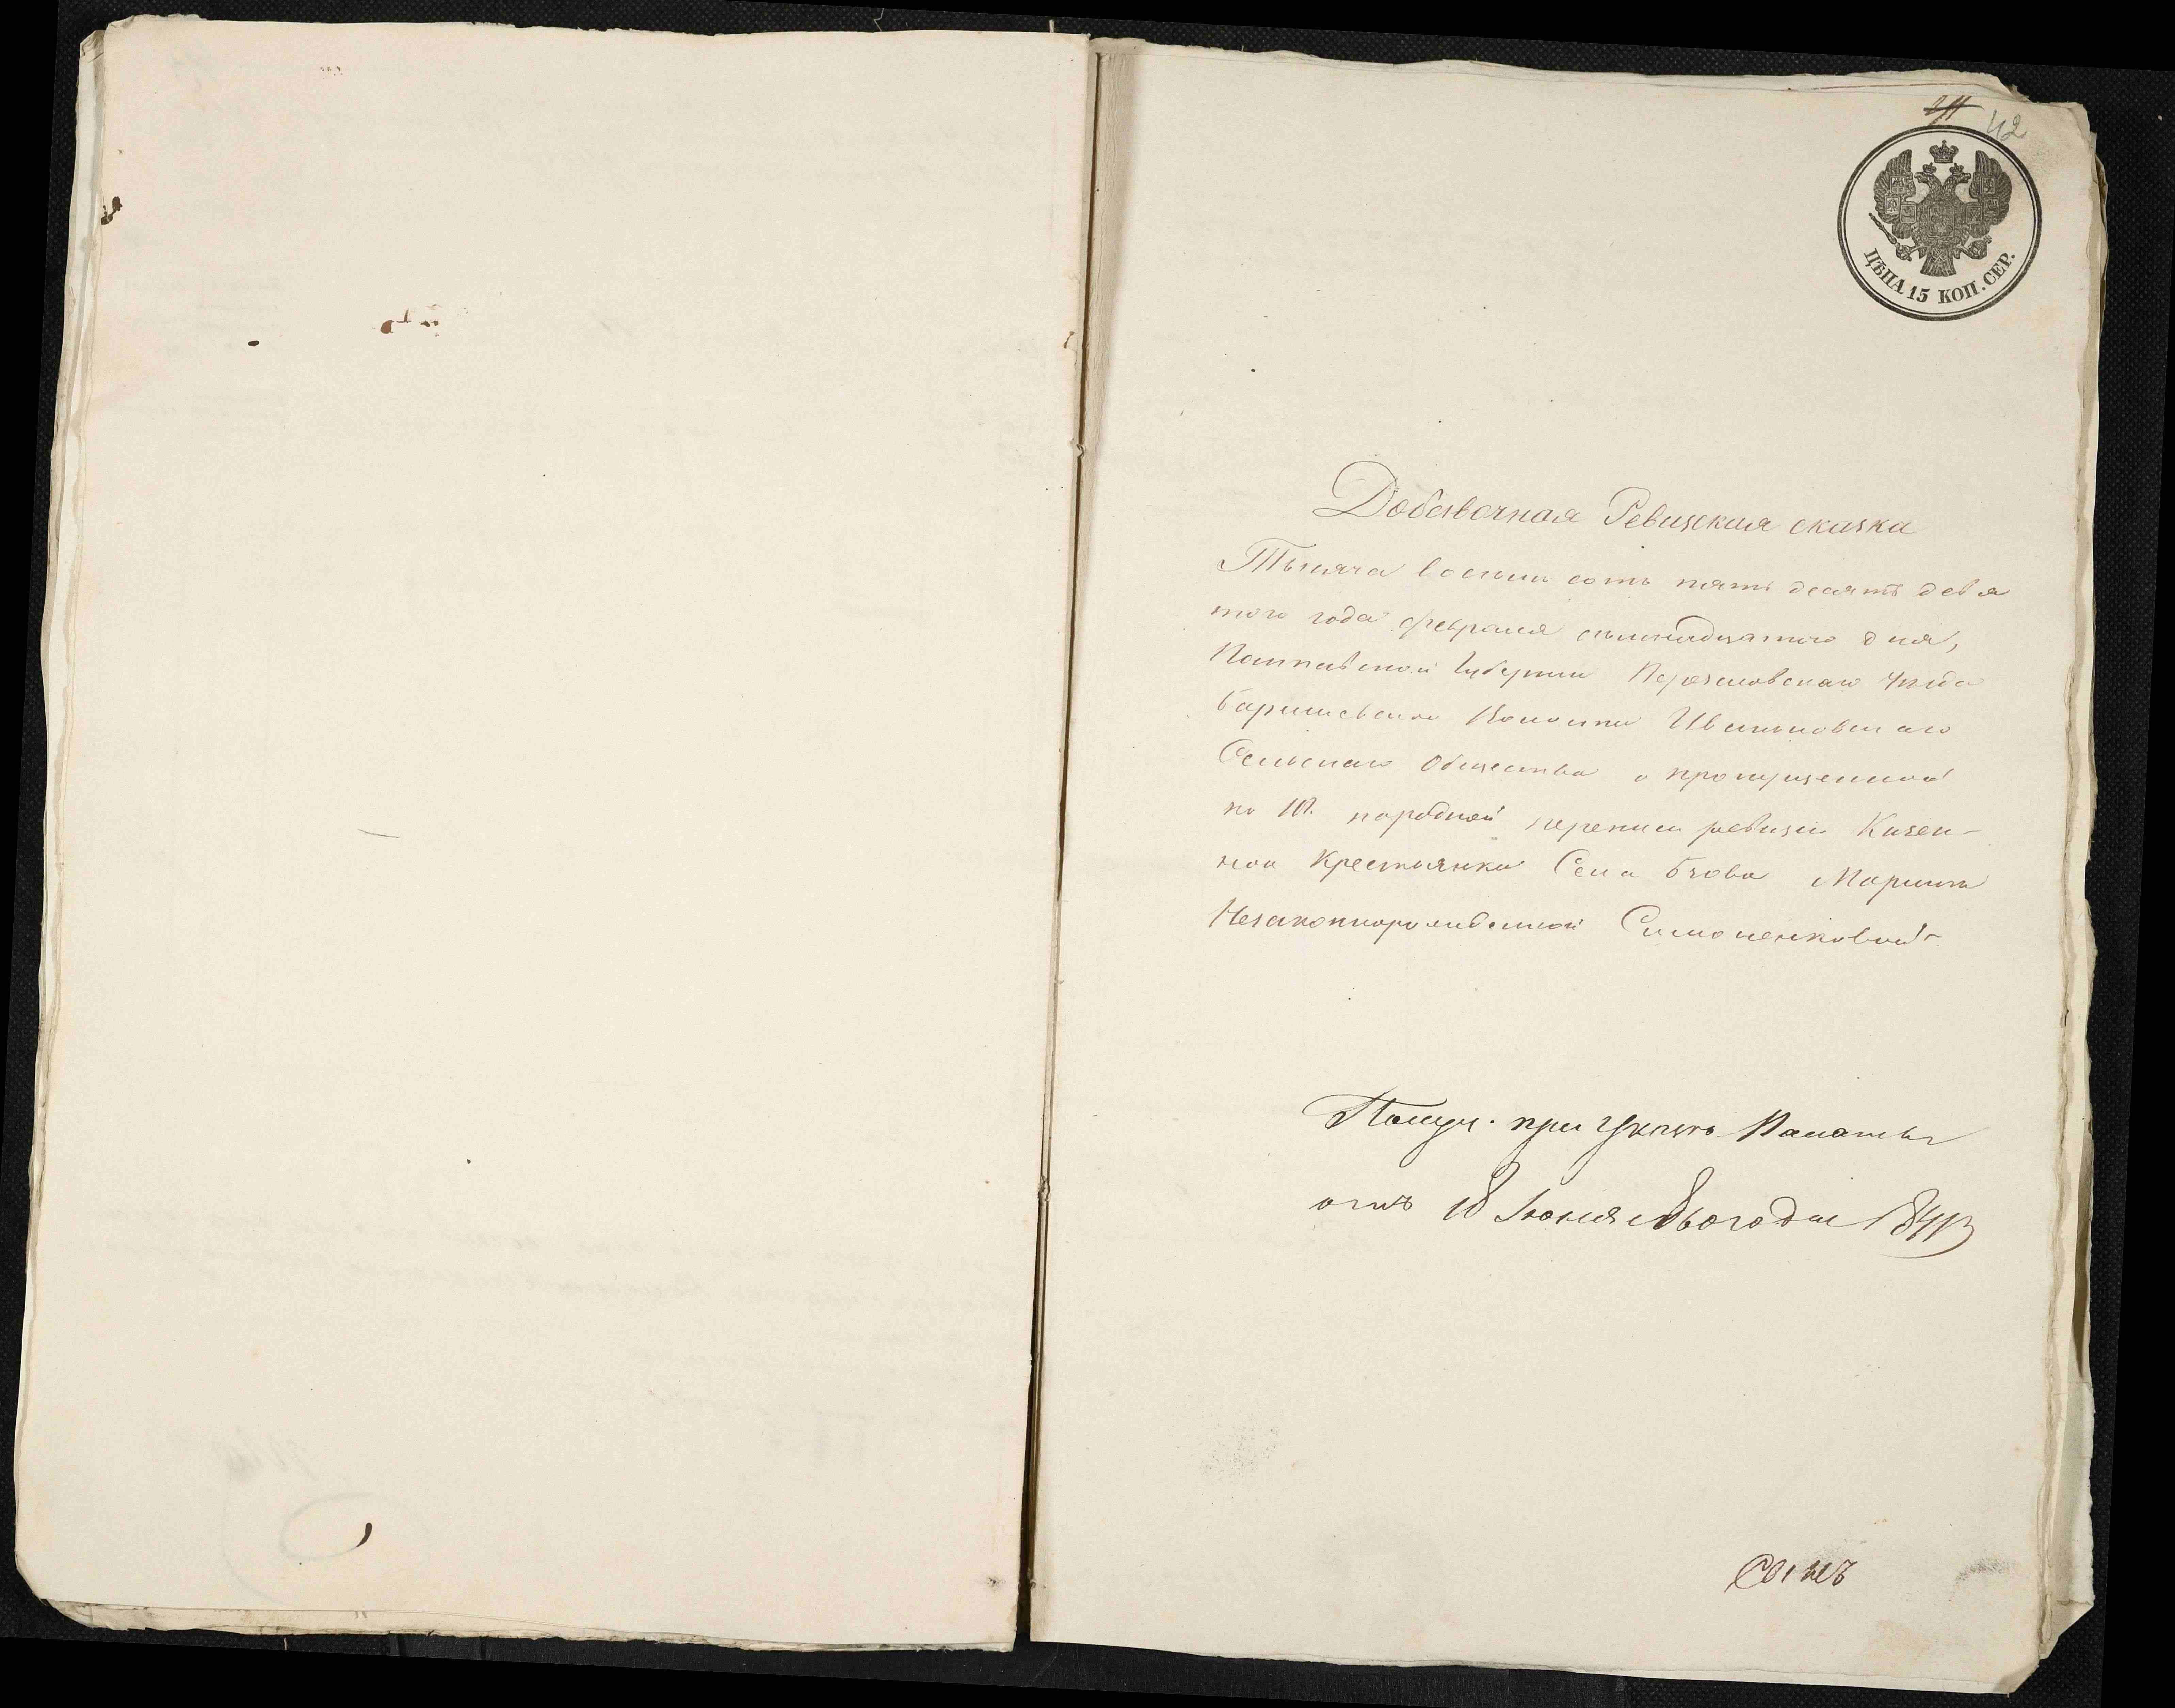 42
ЦѢНА 15 КОП. СЕР.
Добавочная Ревизская сказка
Тысяча восемь сотъ пять десятъ девя
того года февраля семнадцатого дня,
Полтавской Губернии Переяславскаго Уѣзда
Барышевской Волости Иваньковскаго
Сельскаго Общества о пропущенной
по 10й народной переписи ревизіи Казен-
ной Крестьянки Села Бзова Марины
Незаконнорожденной Симоненковой
Получ. при Указѣ Палаты
отъ 18 Іюня 1860 года
Сынъ